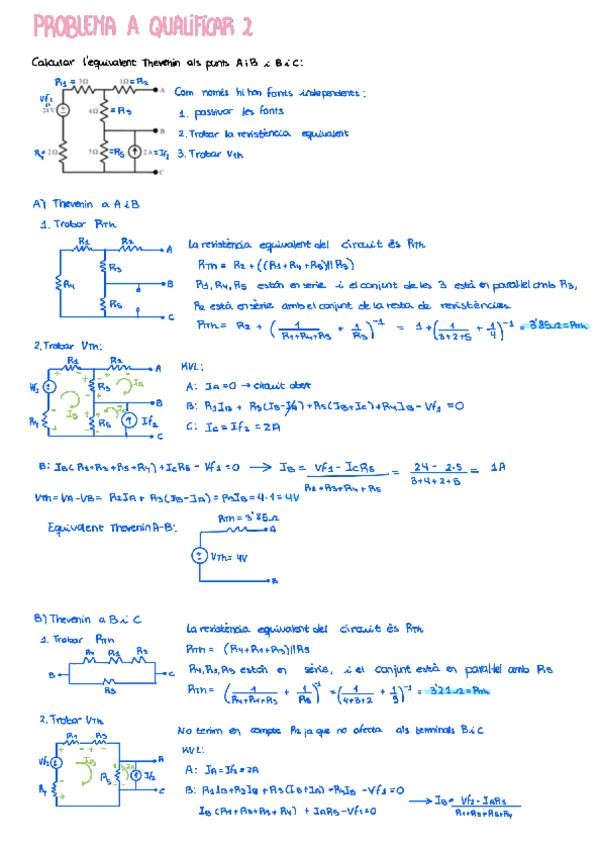 PROBLEMA A QUALIFICAR 2
Calcular l'equivalent Thevenin als punts A i B i B i C:
R1 = 3Ω 1Ω = R2 A
Vf1 24V 4Ω = R3
B
R4 = 2Ω 5Ω = R5 2A = If2
C
Com només hi han fonts independents:
1. passivar les fonts
2. Trobar la resistència equivalent
3. Trobar Vth
A) Thevenin a A i B
1. Trobar RTh
R1 R2 A
R3
R4 B
R5
C
La resistència equivalent del circuit és RTh
RTh = R2 + ((R1+R4+R5)//R3)
R1, R4, R5 están en sèrie i el conjunt de les 3 está en paral·lel amb R3,
R2 està en sèrie amb el conjunt de la resta de resistències
RTh = R2 + (1/(R1+R4+R5) + 1/R3)⁻¹ = 1 + (1/(3+2+5) + 1/4)⁻¹ = 3'85Ω = RTh
2. Trobar VTh:
R1 R2 A
Vf1 R3 IA
IB B
R4 R5 If2
C
KVL:
A: IA = 0 → circuit obert
B: R1IB + R3(IB-IA) + R5(IB+IC) + R4IB - Vf1 = 0
C: IC = If2 = 2A
B: IB(R1+R3+R5+R4) + ICR5 - Vf1 = 0 → IB = (Vf1 - ICR5)/(R1+R3+R4+R5) = (24 - 2·5)/(3+4+2+5) = 1A
VTh = VA - VB = R2IA + R3(IB-IA) = R3IB = 4·1 = 4V
Equivalent Thevenin A-B:
RTh = 3'85Ω
A
VTh = 4V
B
B) Thevenin a B i C
1. Trobar RTh
R4 R1 R3
B C
R5
La resistència equivalent del circuit és RTh
RTh = (R4+R1+R3)//R5
R4, R1, R3 están en sèrie, i el conjunt està en paral·lel amb R5
RTh = (1/(R4+R1+R3) + 1/R5)⁻¹ = (1/(4+3+2) + 1/5)⁻¹ = 3'21Ω = RTh
2. Trobar VTh
R1 R3
Vf1 IB B
R5 IA If2
R4 C
No tenim en compte R2 ja que no afecta als terminals B i C
KVL:
A: IA = If2 = 2A
B: R1IB + R3IB + R5(IB+IA) + R4IB - Vf1 = 0
IB(R1+R3+R5+R4) + IAR5 - Vf1 = 0 → IB = (Vf1 - IAR5)/(R1+R3+R5+R4)